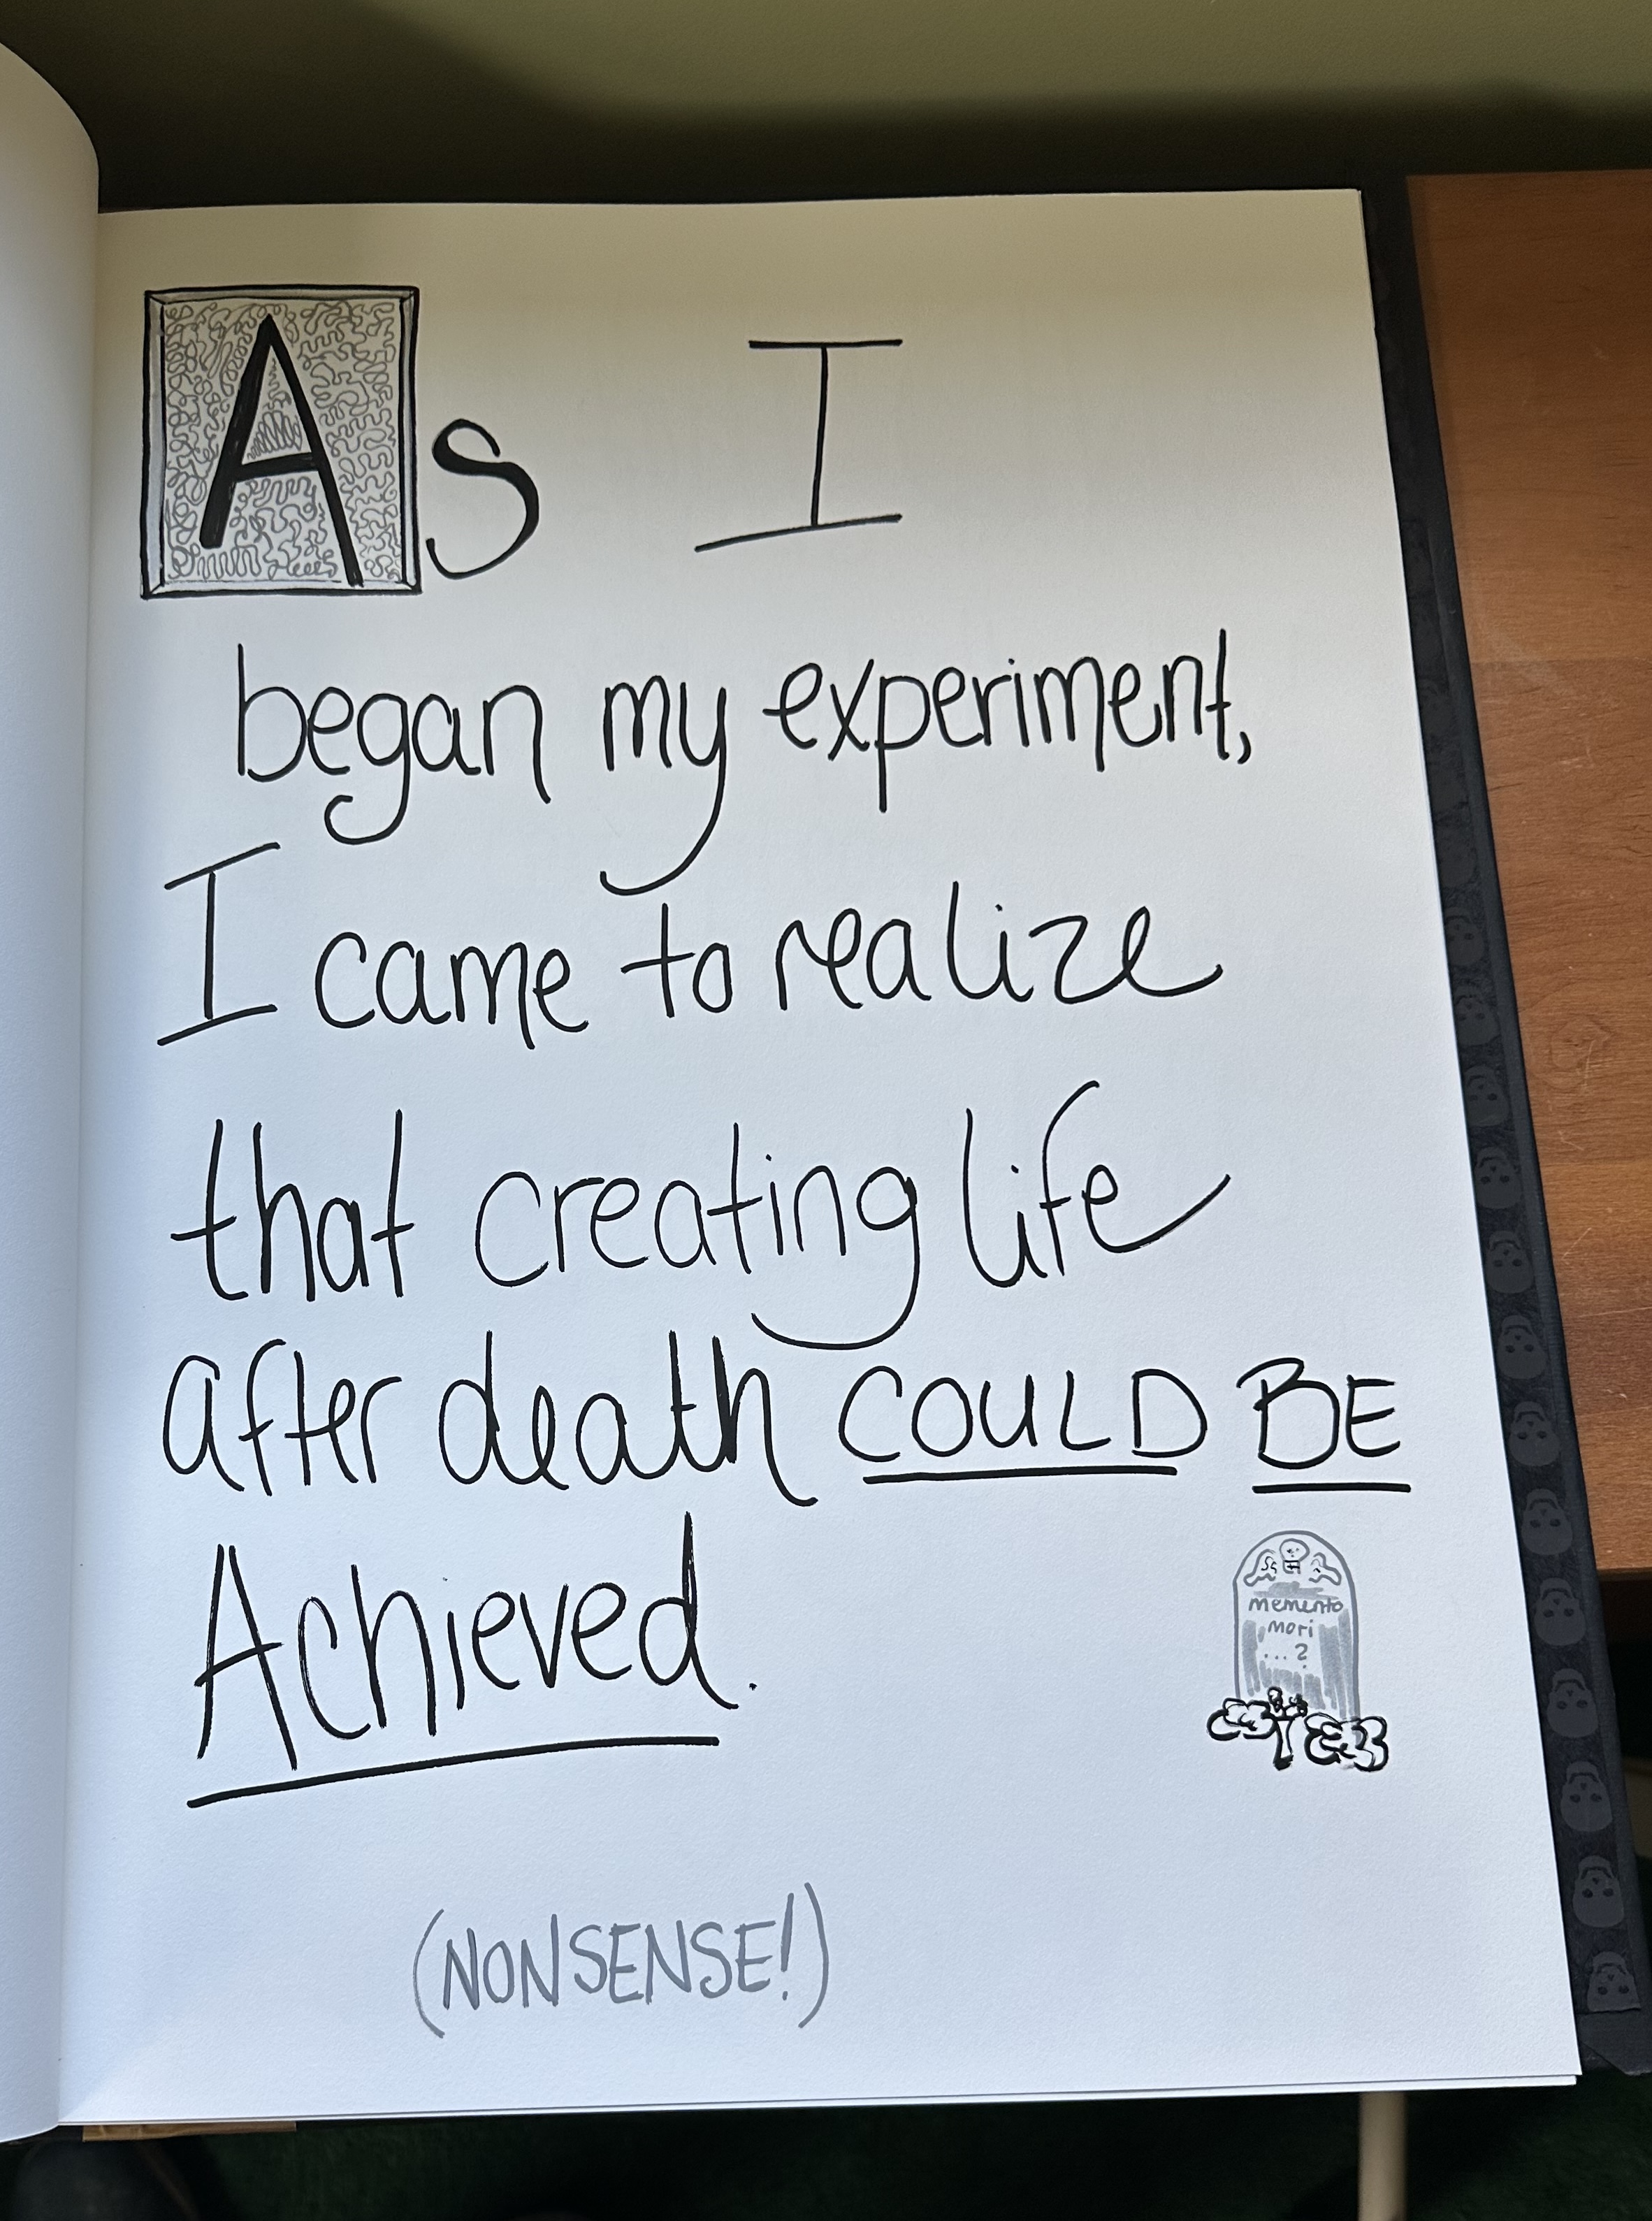 As I
began my experiment,
I came to realize
that creating life
after death COULD BE
Achieved.
memento
mori
... ?
(NONSENSE!)